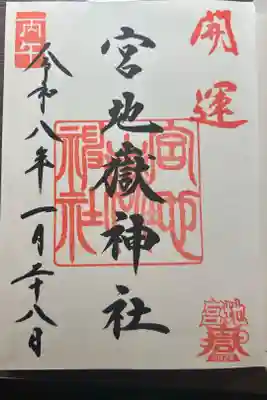 開運
宮地嶽神社
宮地嶽神社
丙午
令和八年一月二十八日